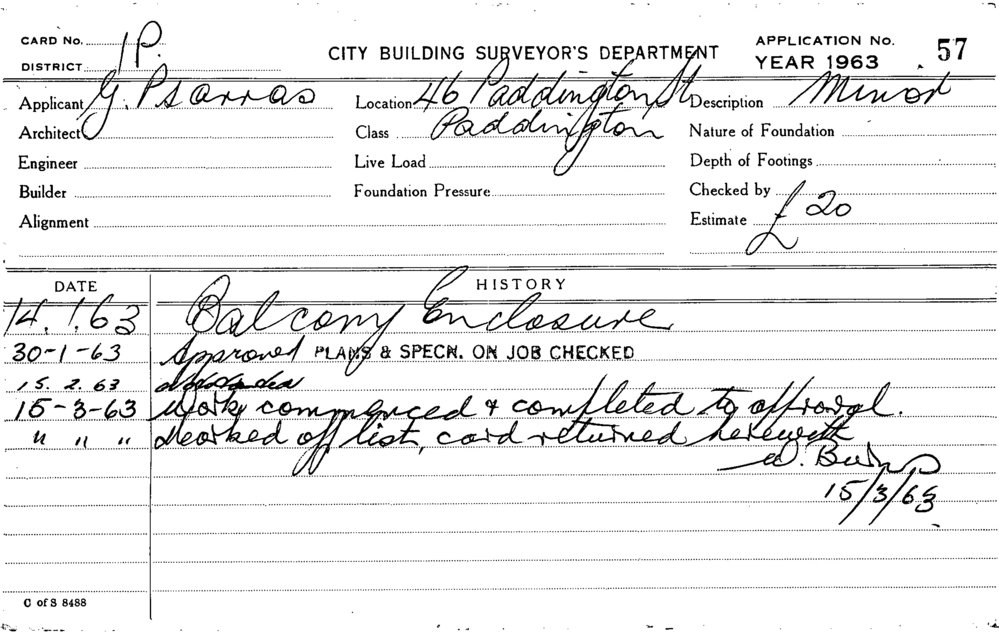 CARD No. 1P.
DISTRICT
CITY BUILDING SURVEYOR'S DEPARTMENT
APPLICATION No. 57
YEAR 1963
Applicant G. Psarras
Location 46 Paddington St
Description Minor
Architect
Class Paddington
Nature of Foundation
Engineer
Live Load
Depth of Footings
Builder
Foundation Pressure
Checked by
Alignment
Estimate £20
DATE
HISTORY
14.1.63 Balcony Enclosure
30-1-63 Approved PLANS & SPECN. ON JOB CHECKED
15.2.63
15-3-63 Work commenced & completed to approval.
" " " Marked off list, card returned herewith
W. Burns
15/3/63
C of S 8488